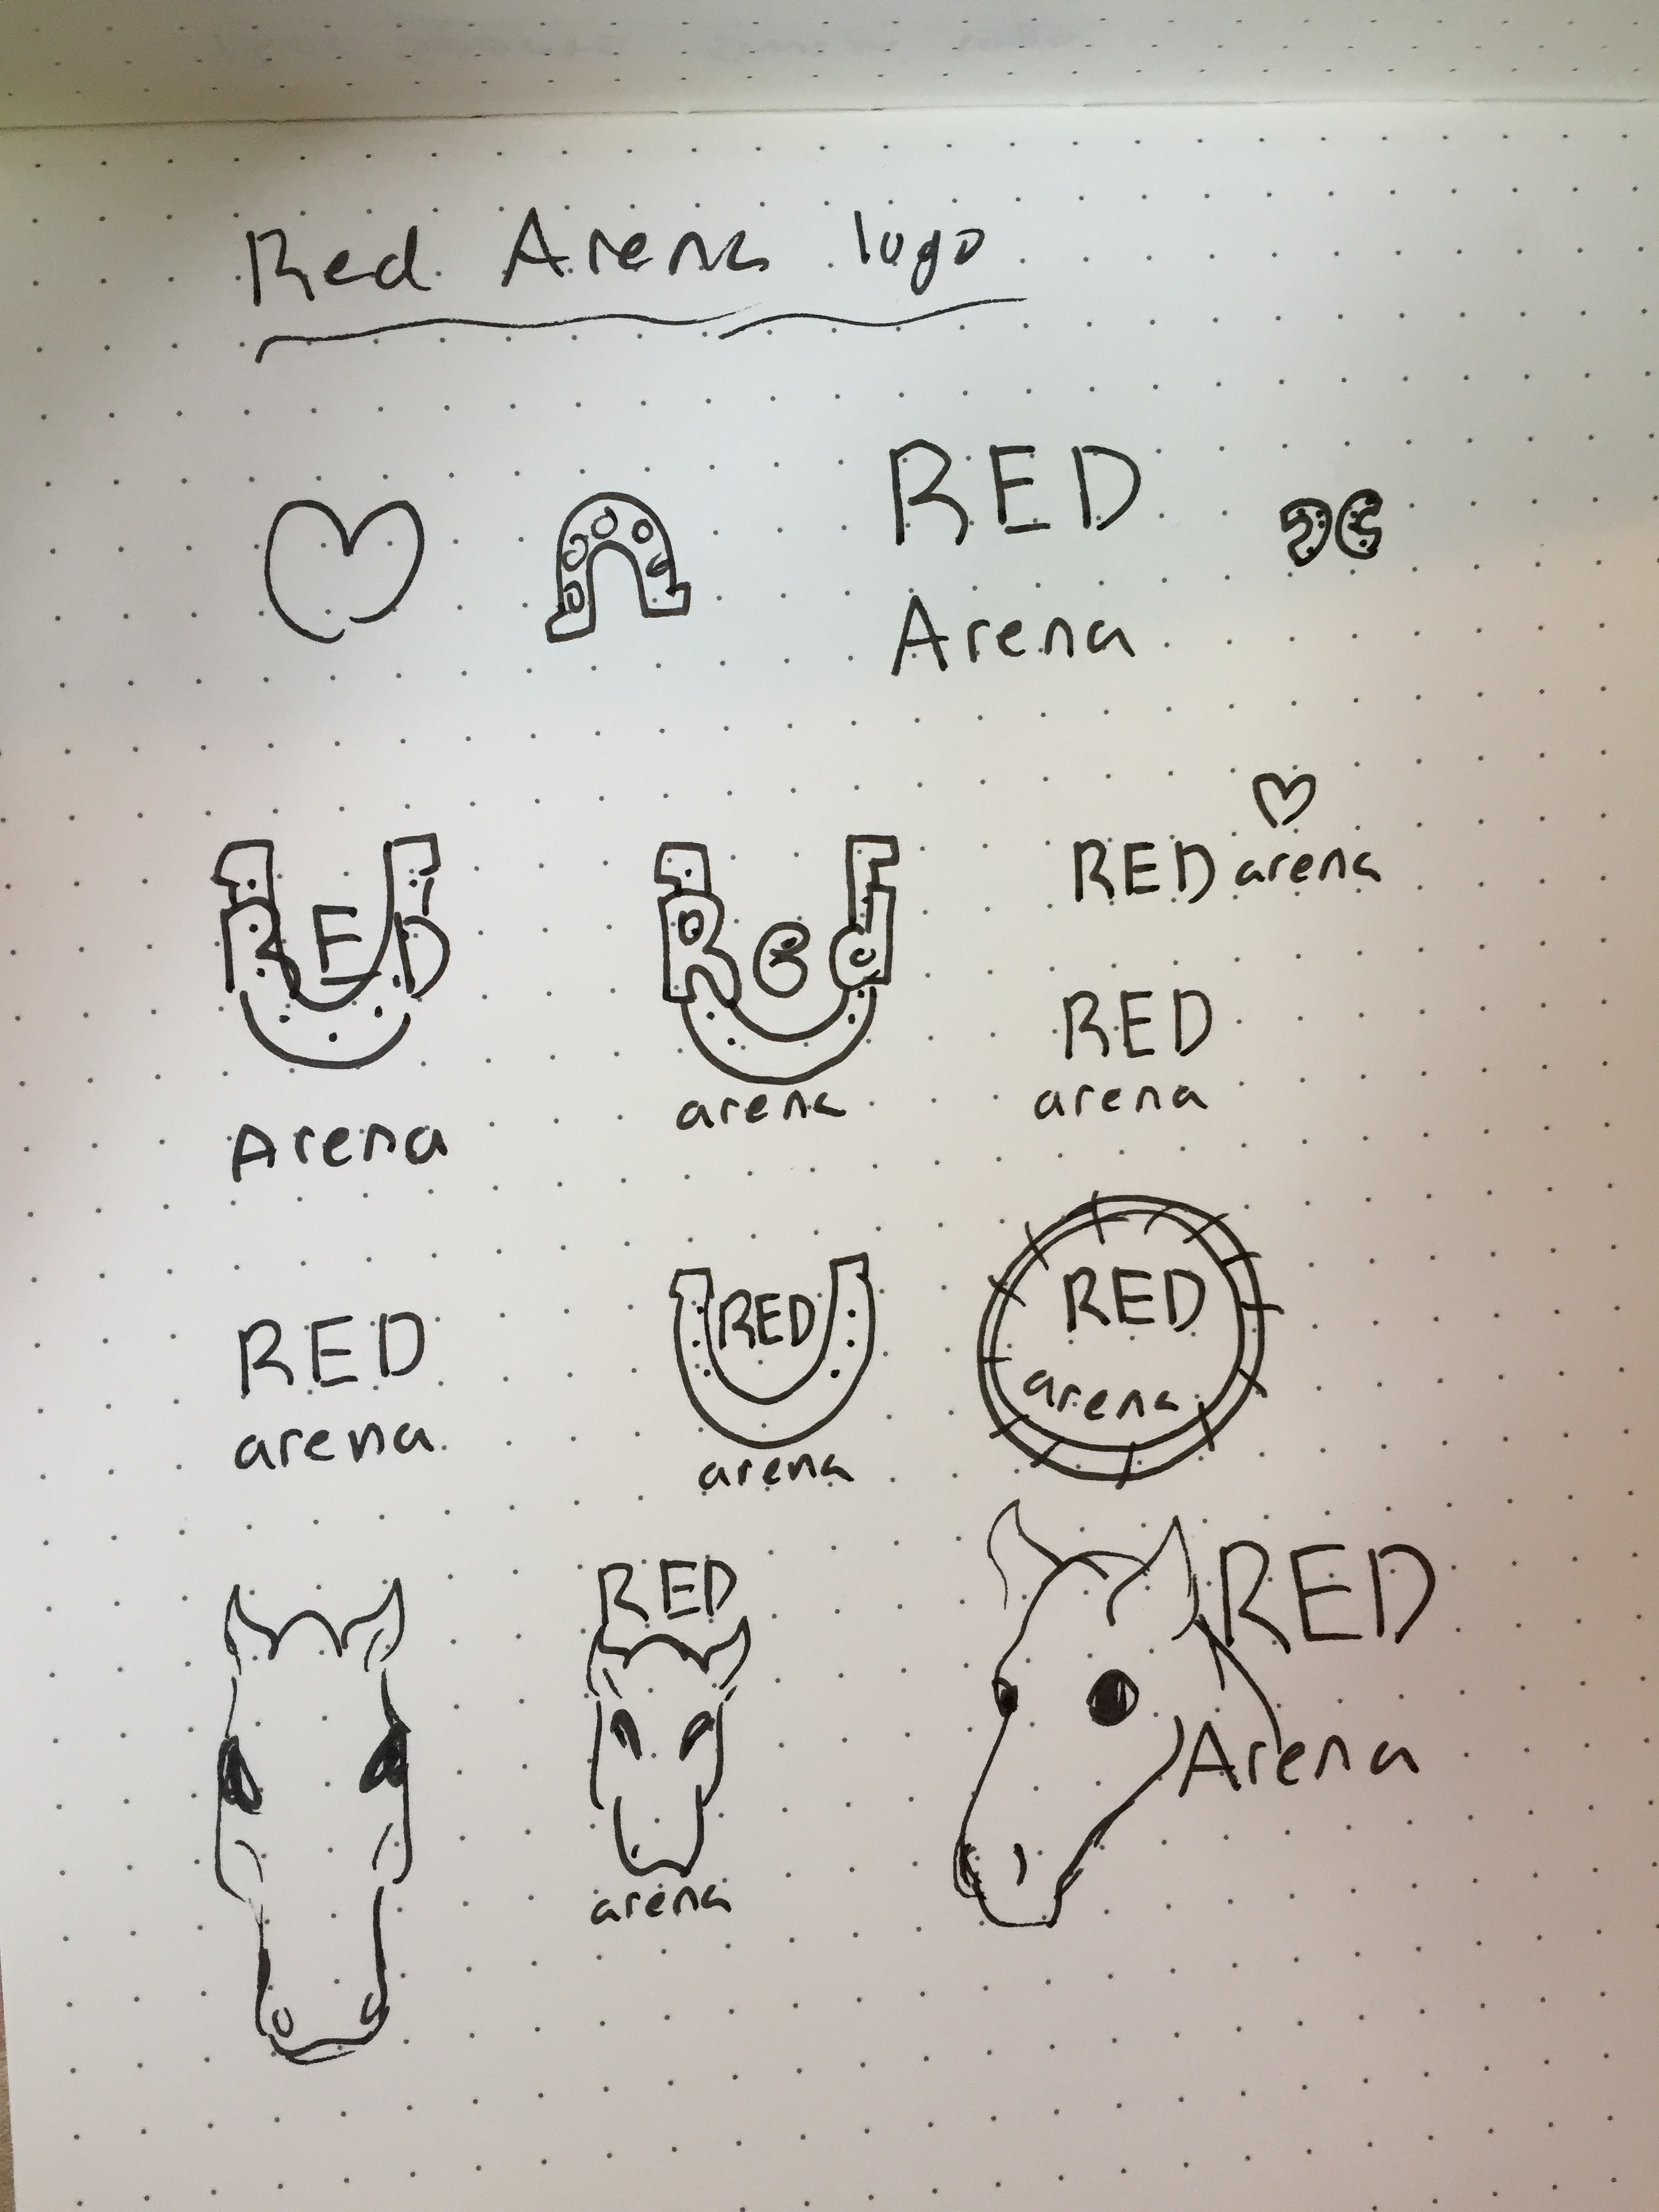 Red Arena logo
RED
Arena
RED
Arena
Red
arena
RED arena
RED
arena
RED
arena
RED
arena
RED
arena
RED
arena
RED
Arena